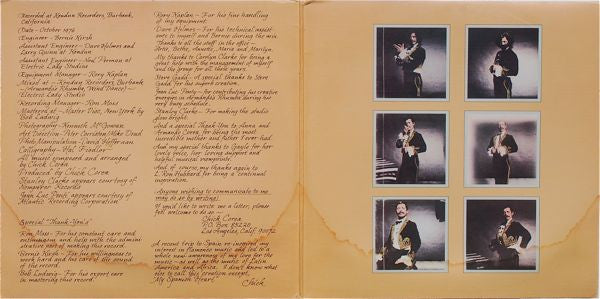 Recorded at Kendun Recorders, Burbank,
California
Date - October 1976
Engineer - Bernie Kirsh
Assistant Engineer - Dave Holmes and
Larry Quinn at Kendun
Assistant Engineer - Neil Perman at
Electric Lady Studios
Equipment Manager - Rory Kaplan
Mixed at - Kendun Recorders, Burbank
- (Armando's Rhumba, Wind Dance) -
Electric Lady Studio
Recording Manager - Ron Moss
Mastered at - Master Disc, New York by
Bob Ludwig
Photography - Kenneth McGowan
Art Direction - Peter Corriston/Mike Doud
Photo Manipulation - David Heffernan
Calligraphy - Hal Fiedler
All music composed and arranged
by Chick Corea
Produced by Chick Corea
Stanley Clarke appears courtesy of
Nemperor Records
Jean Luc Ponty appears courtesy of
Atlantic Recording Corporation
Special "Thank-You's"
Ron Moss - For his constant care and
enthusiasm and help with the admini-
strative part of making this record.
Bernie Kirsh - For his willingness to
work hard and his care of the sound
of the record.
Bob Ludwig - For his expert care
in mastering this record.
Rory Kaplan - For his fine handling
of my equipment.
Dave Holmes - For his technical assist-
ance to myself and Bernie during the mix.
Thanks to all the staff in the office -
Arte, Bethe, Annette, Maria and Marilyn.
My thanks to Carolyn Clarke for being a
great help with the management of myself
and the group for all these years.
Steve Gadd - A special thanks to Steve
Gadd for his superb creation.
Jean Luc Ponty - for contributing his creative
energies in Armando's Rhumba during his
very busy schedule.
Stanley Clarke - For making the studio
glow bright.
And a special Thank You to Anna and
Armando Corea, for being the most
incredible mother and father I ever had.
And my special thanks to Gayle for her
lovely voice, her loving support and
helpful musical viewpoints.
And of course, my thanks again to
L. Ron Hubbard for being a continual
inspiration.
Anyone wishing to communicate to me
may do so by writing!
If you'd like to write me a letter, please
feel welcome to do so -
Chick Corea
P.O. Box
Los Angeles, Calif. 90072
A recent trip to Spain re-inspired my
interest in flamenco music and led to a
whole new awareness of my love for the
music - as well as the music of Latin
America and Africa. I don't know what
else to call this creation except,
My Spanish Heart.
Chick